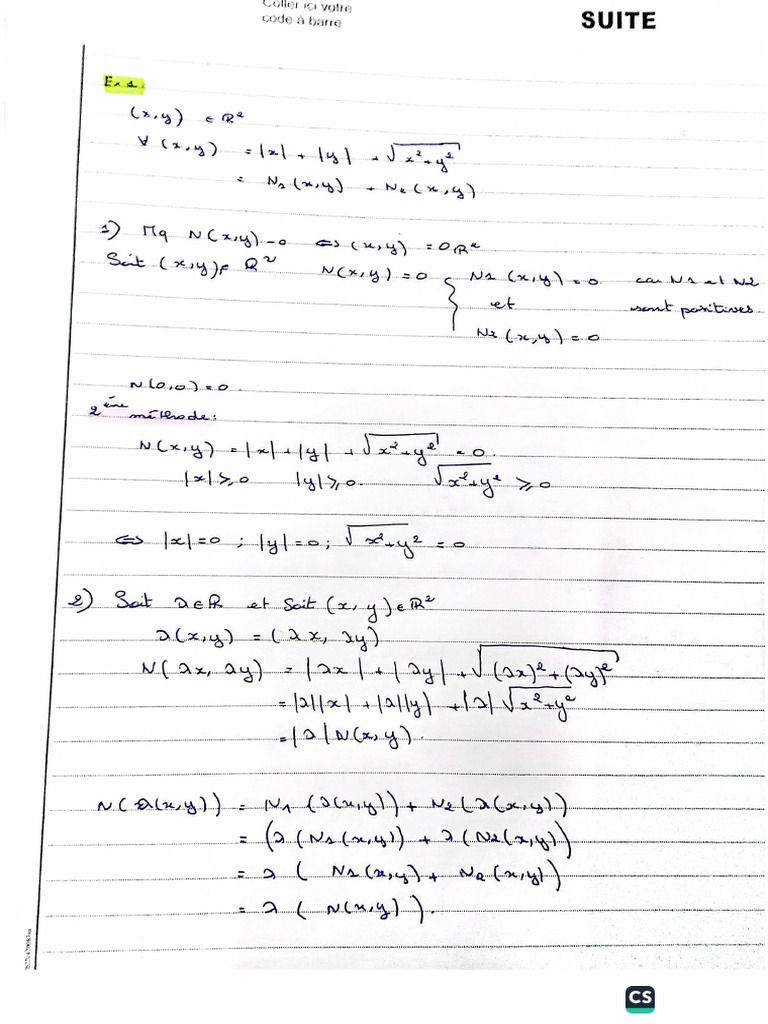 Coller ici votre
code à barre
SUITE
Ex 1.
(x,y) ∈ ℝ²
∀ (x,y) = |x| + |y| + √(x²+y²)
= N1(x,y) + N2(x,y)
1) Mq N(x,y)=0 ⇔ (x,y) = 0ℝ²
Soit (x,y)∈ ℝ² N(x,y)=0 { N1(x,y)=0 car N1 et N2
et sont positives.
N2(x,y)=0
N(0,0)=0.
2ème méthode:
N(x,y) = |x|+|y| + √(x²+y²) = 0.
|x|⩾0 |y|⩾0. √(x²+y²) ⩾0
⇔ |x|=0 ; |y|=0 ; √(x²+y²) = 0
2) Soit λ∈ℝ et Soit (x, y)∈ℝ²
λ(x,y) = (λx, λy)
N(λx, λy) = |λx| + |λy| + √((λx)²+(λy)²)
= |λ||x| + |λ||y| + |λ| √(x²+y²)
= |λ| N(x,y).
N(λ(x,y)) = N1(λ(x,y)) + N2(λ(x,y))
= (λ(N1(x,y)) + λ(N2(x,y))
= λ( N1(x,y) + N2(x,y))
= λ( N(x,y)).
CS